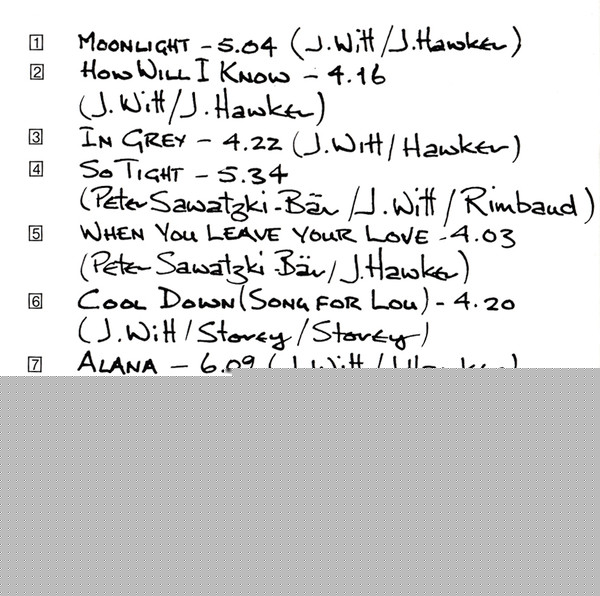 1 MOONLIGHT - 5.04 (J. Witt/J. Hawker)
2 HOW WILL I KNOW - 4.16
(J. Witt/J. Hawker)
3 IN GREY - 4.22 (J. Witt/Hawker)
4 SO TIGHT - 5.34
(Peter Sawatzki-Bär/J. Witt/Rimbaud)
5 WHEN YOU LEAVE YOUR LOVE - 4.03
(Peter Sawatzki-Bär/J. Hawker)
6 COOL DOWN (SONG FOR LOU) - 4.20
(J. Witt/Storey/Storey)
7 ALANA - 6.09 (J. Witt/